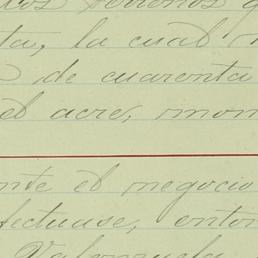 terrenos
ta, la cual
de cuarenta
el acre, mon
nte el negocio
fectuase, enton
Valenzuela